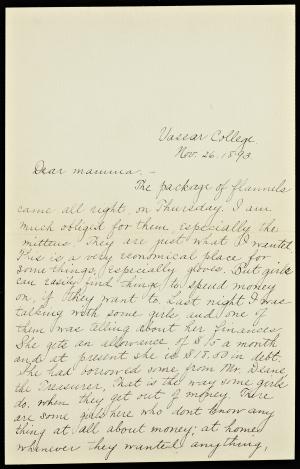 Vassar College.
Nov. 26. 1893.
Dear mamma, -
The package of flannels
came all right, on Thursday. I am
much obliged for them, especially the
mittens. They are just what I wanted.
This is a very economical place for
some things, especially gloves. But girls
can easily find things to spend money
on, if they want to. Last night I was
talking with some girls and one of
them was telling about her finances.
She gets an allowance of $15 a month
and at present she is $18.50 in debt.
She has borrowed some from Mr. Deane,
the Treasurer. That is the way some girls
do, when they get out of money. There
are some girls here who don't know any
thing at all about money; at home
whenever they wanted anything,